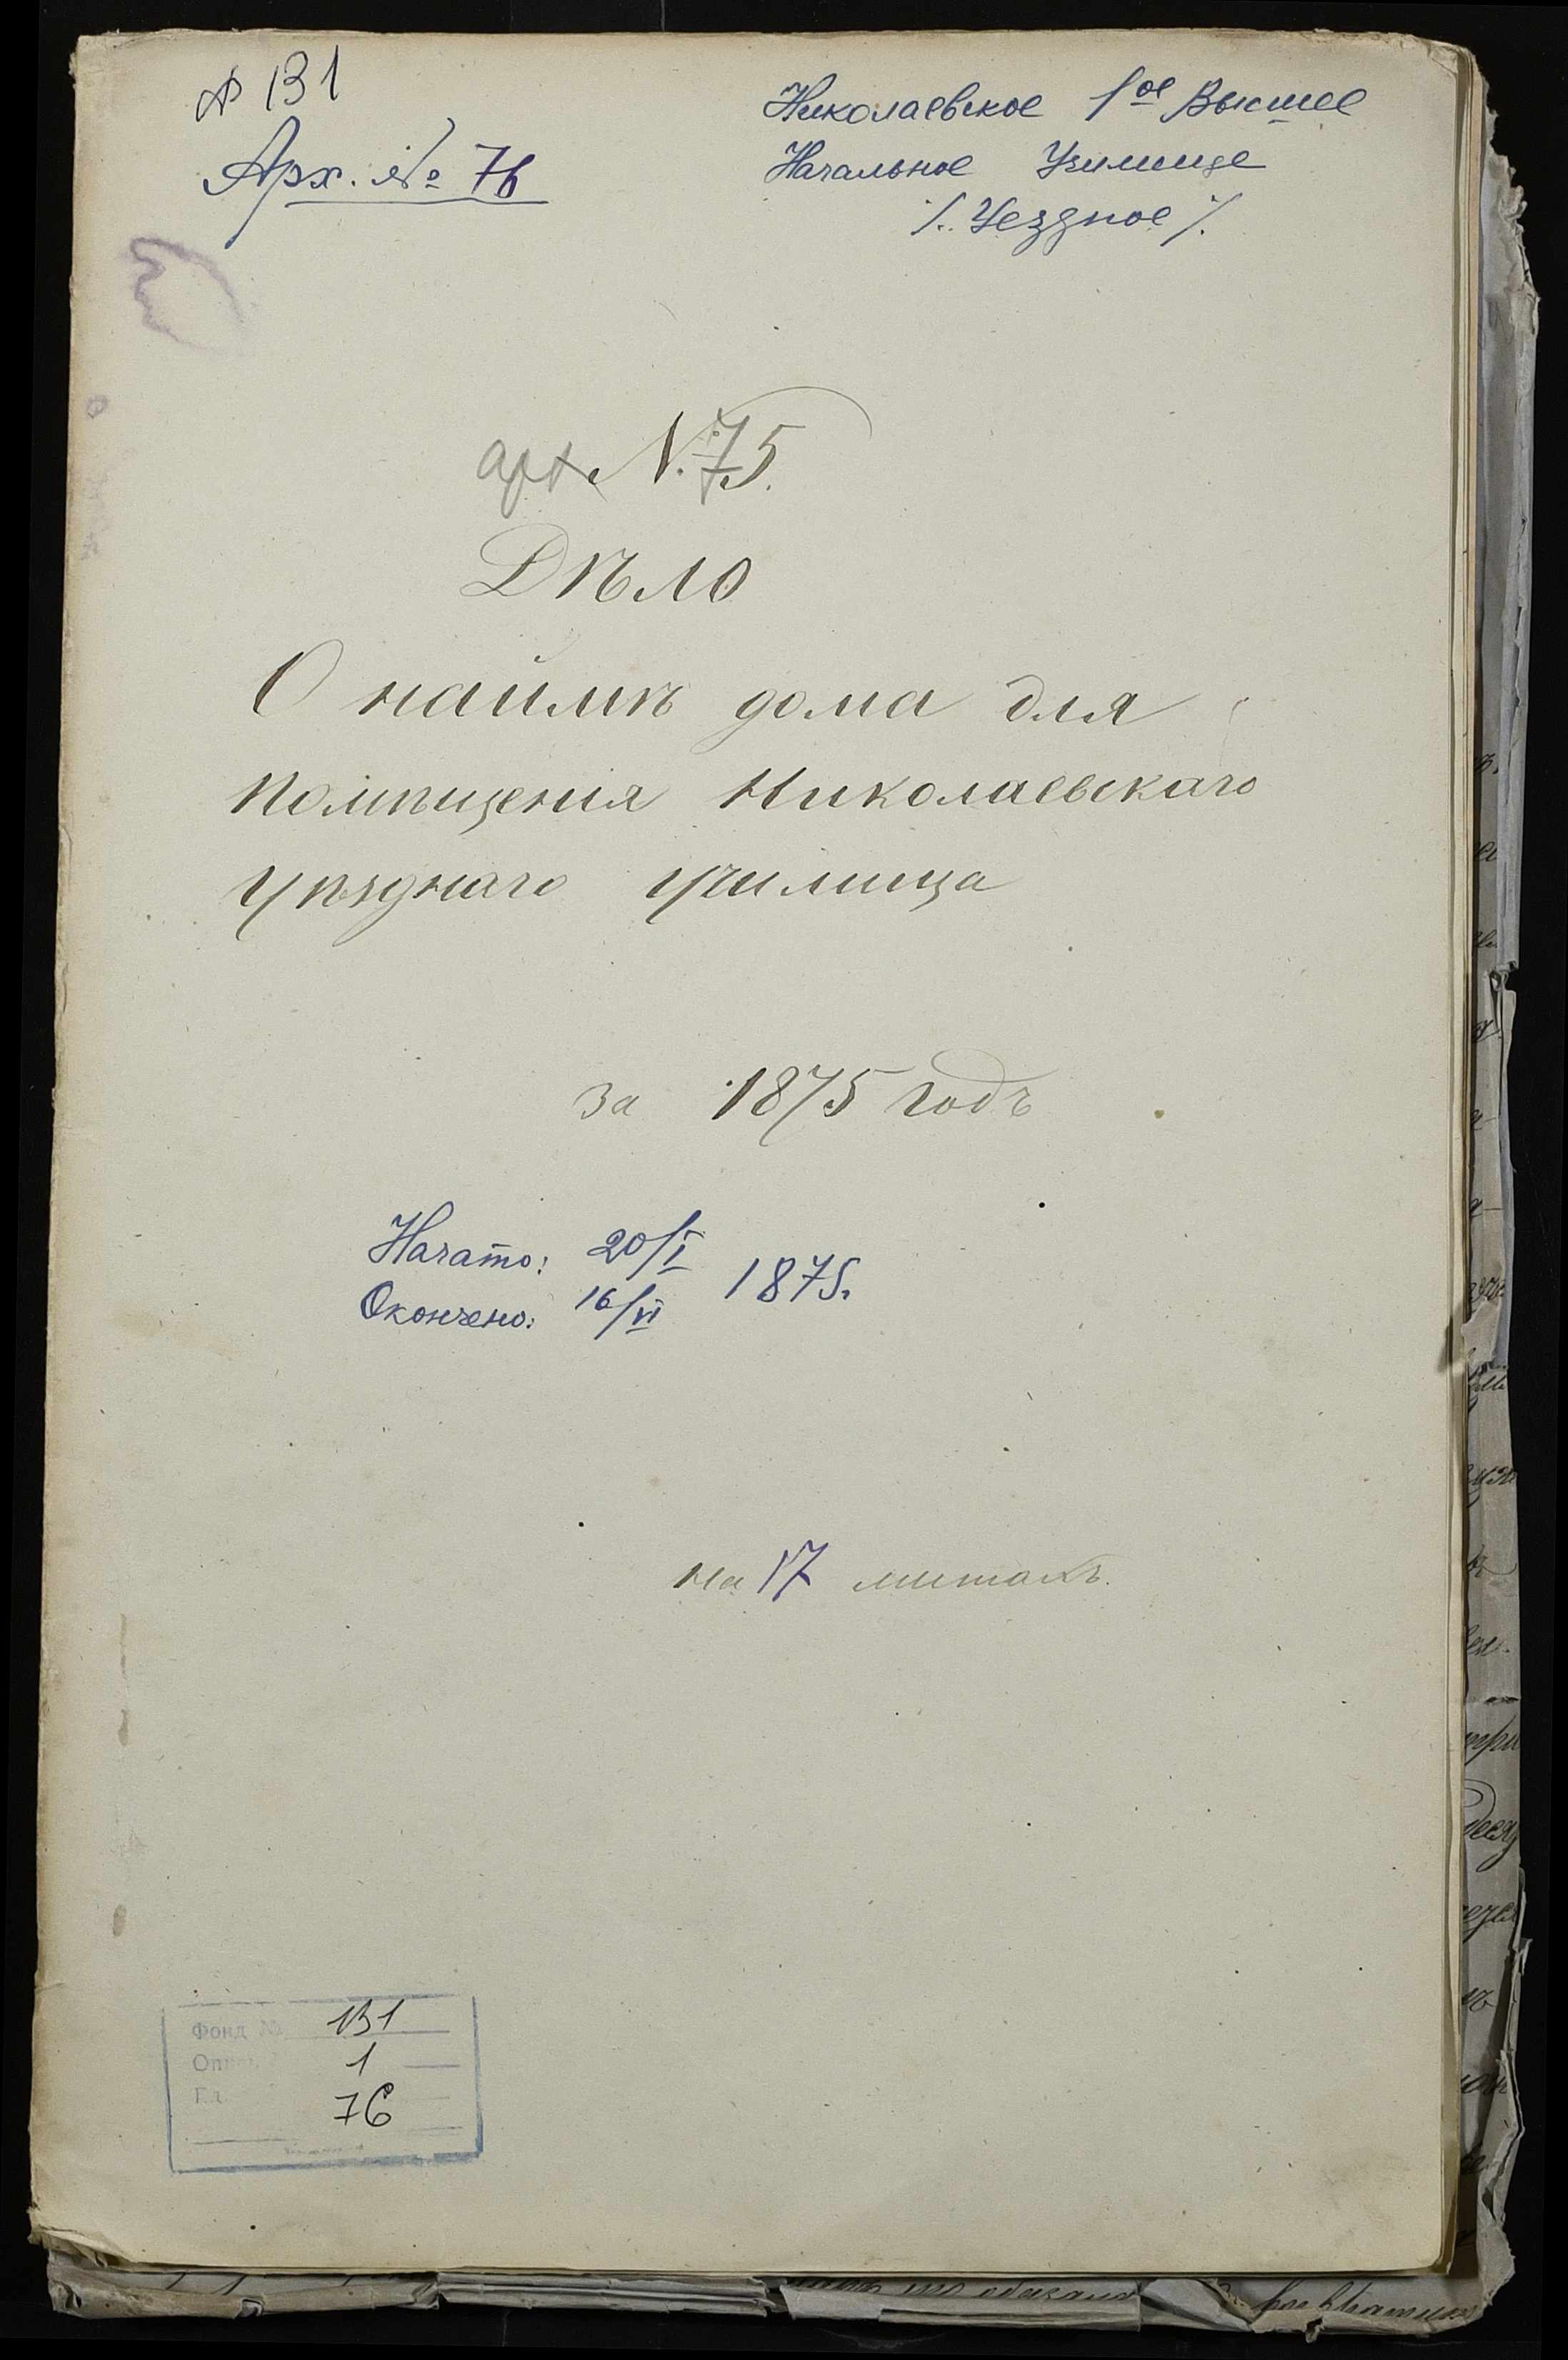 № 131
Арх. № 76
Николаевское 1ое Высшее
Начальное Училище
/. Уездное /.
арх. N. 75.
Дѣло
О наймѣ дома для
помѣщенія Николаевскаго
уѣзднаго училища
за 1875 годъ
Начато: 20/I
1875.
Окончено: 16/VI
на 17 листахъ.
Фонд № 131
Опись 1
76